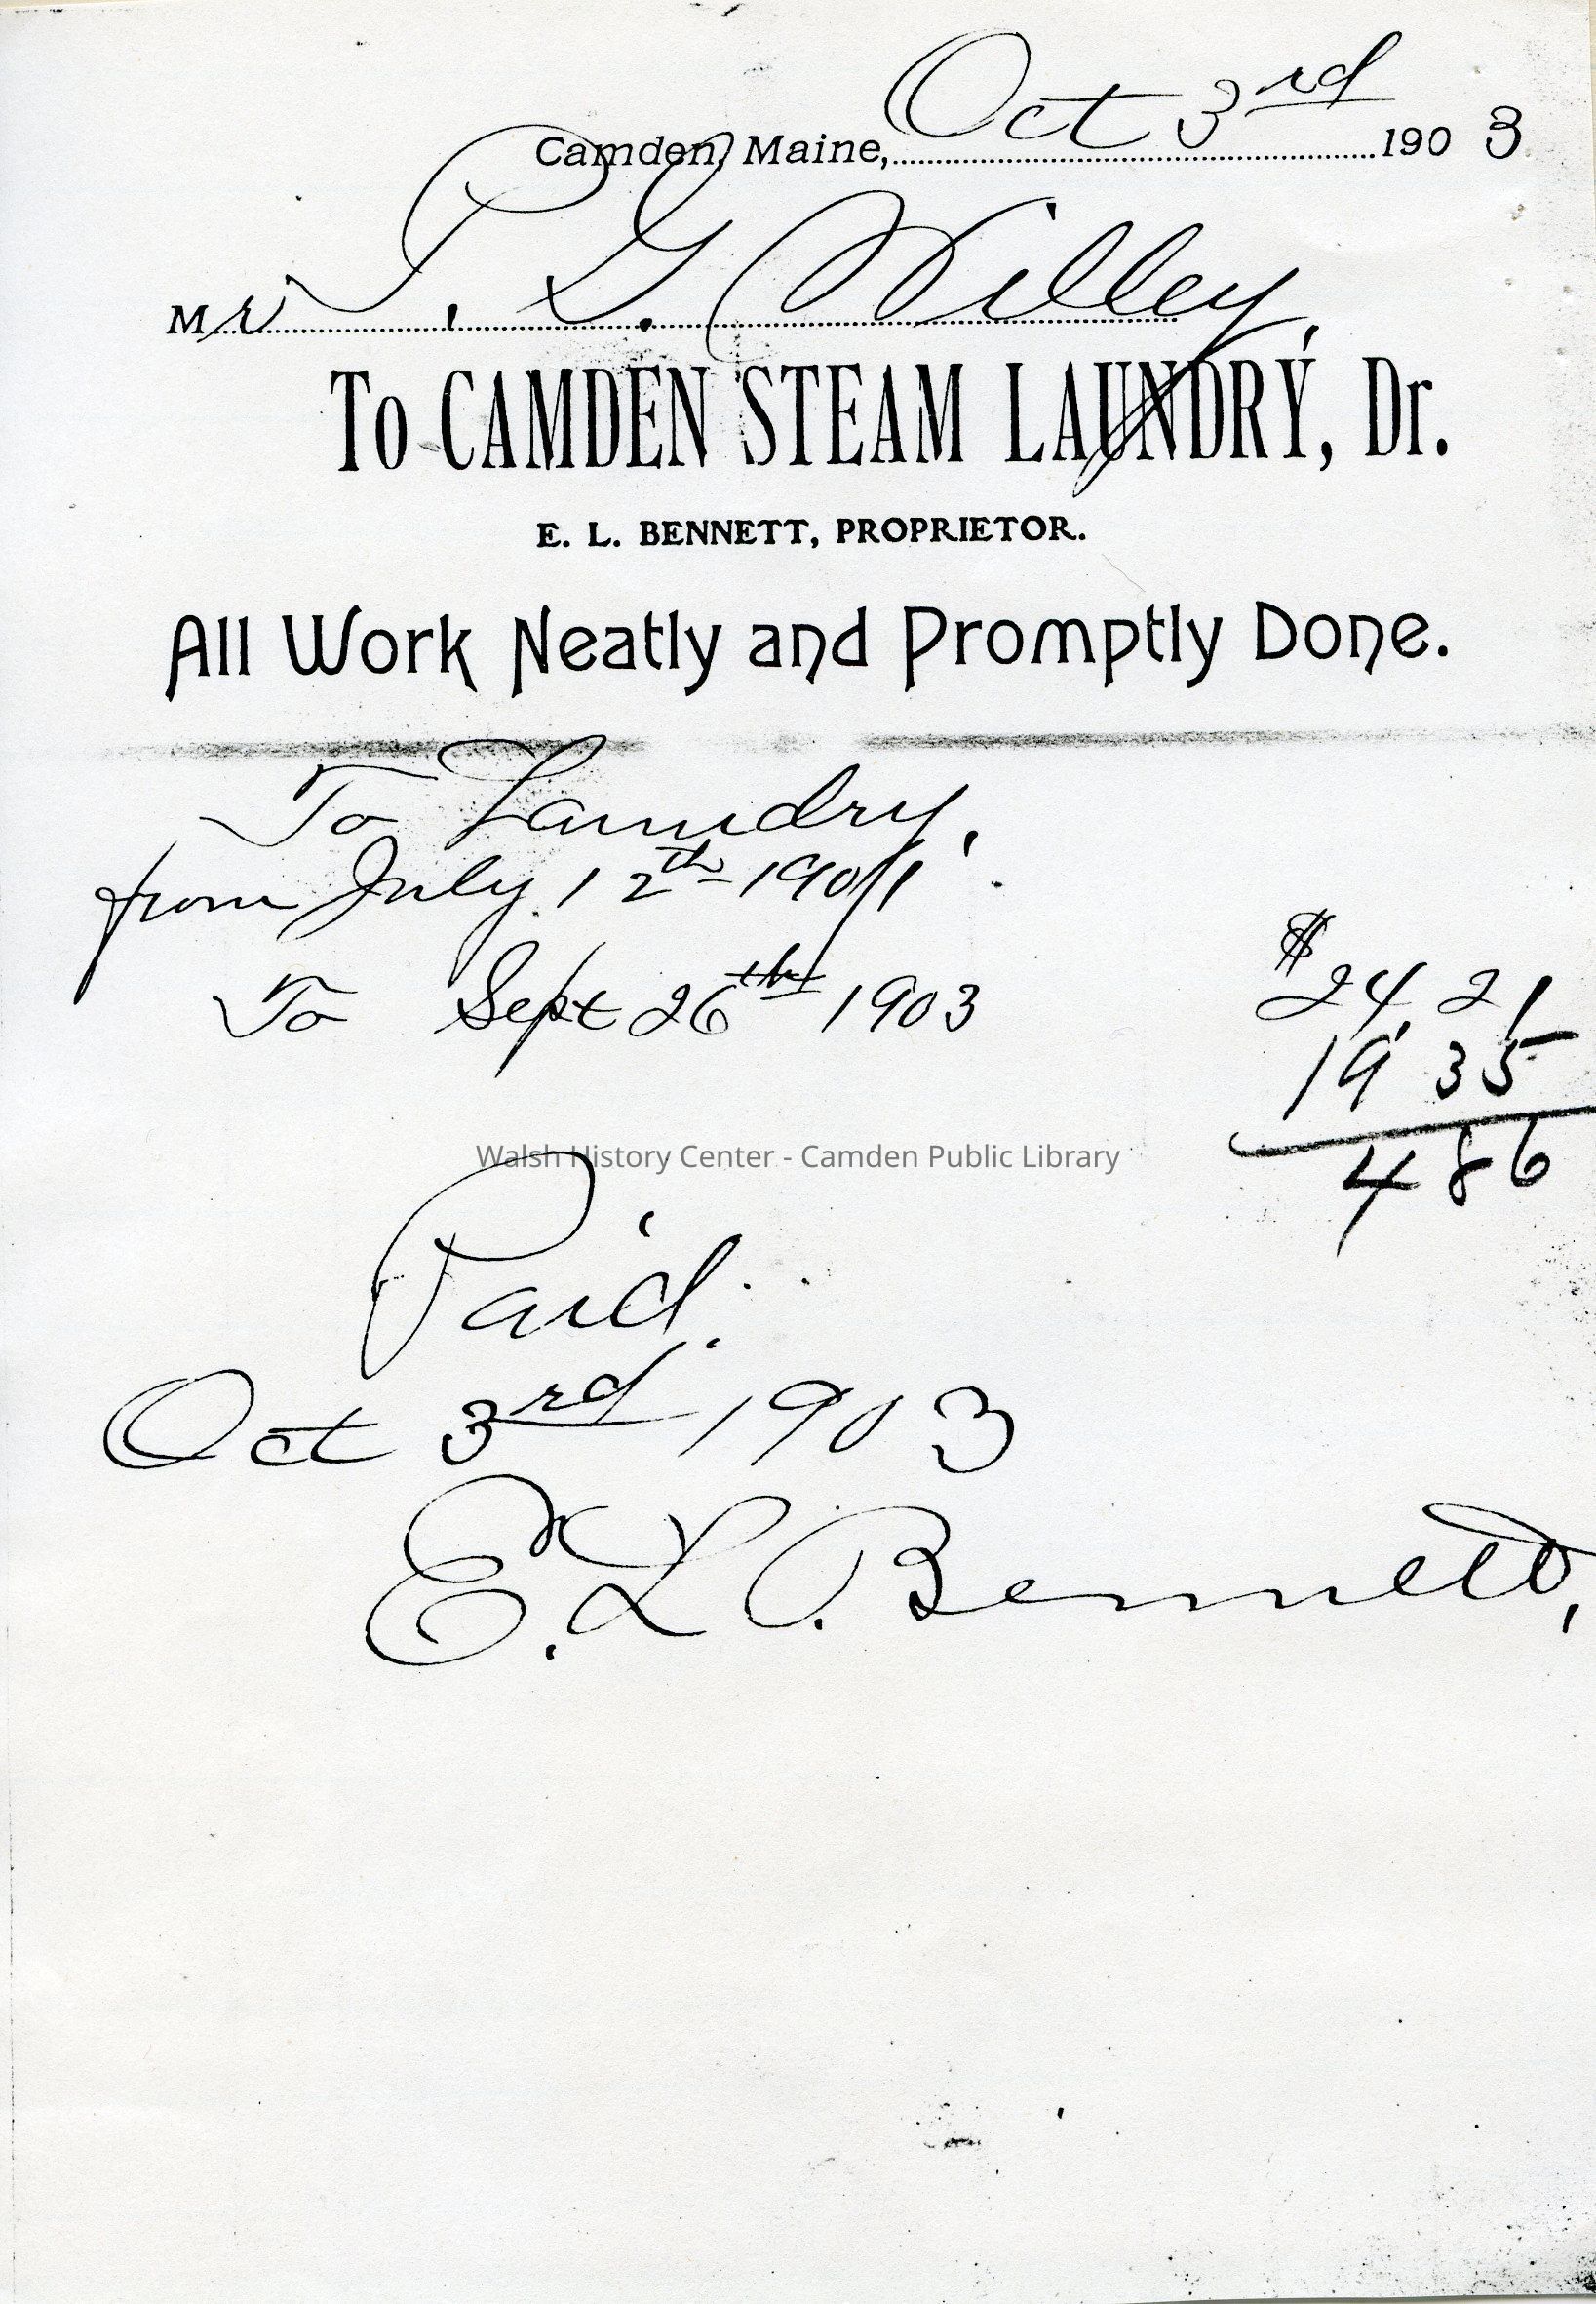 Camden, Maine, Oct 3rd 1903
Mr P. G. Willey,
To CAMDEN STEAM LAUNDRY, Dr.
E. L. BENNETT, PROPRIETOR.
All Work Neatly and Promptly Done.
To Laundry,
from July 12th 1901
To Sept 26th 1903
$24,21
19 35
4 86
Walsh History Center - Camden Public Library
Paid.
Oct 3rd 1903
E. L. Bennett,